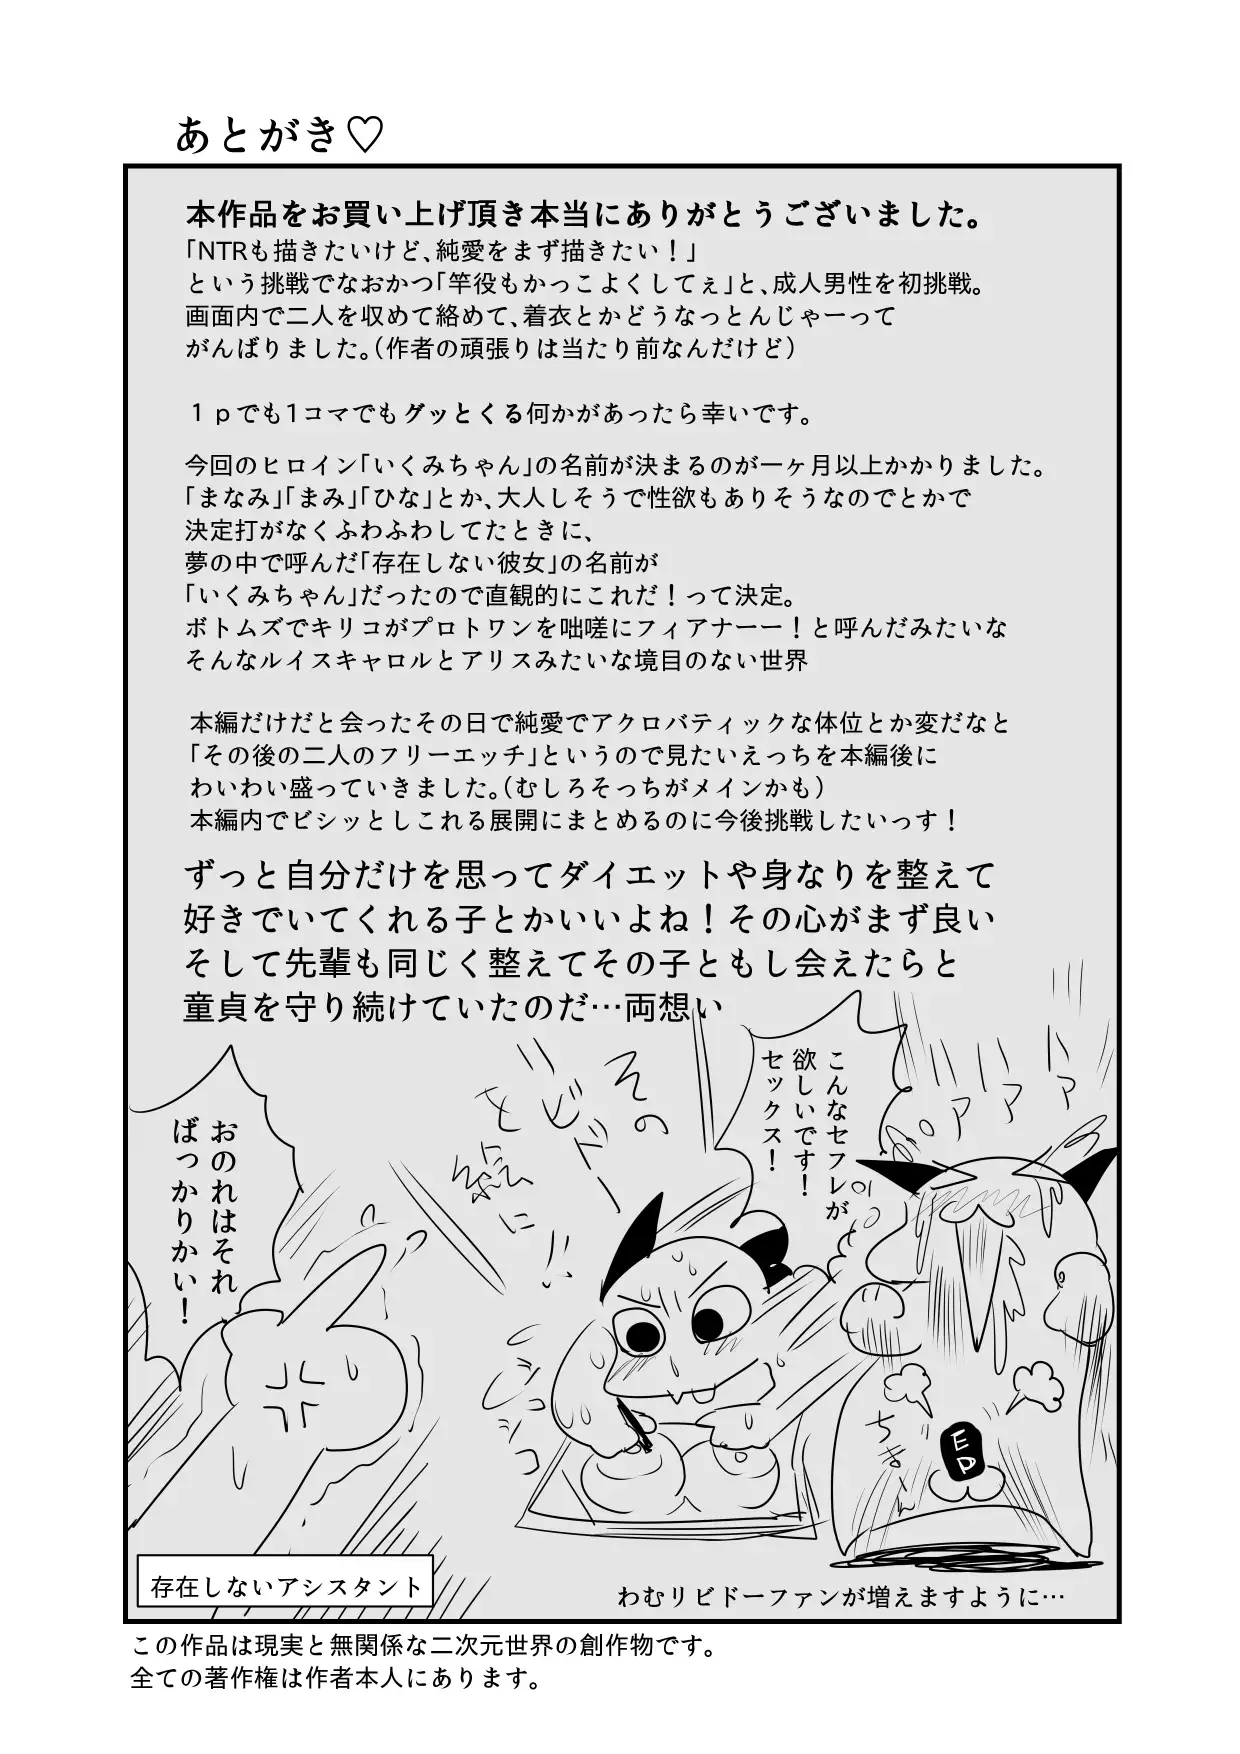 あとがき♡
本作品をお買い上げ頂き本当にありがとうございました。
「NTRも描きたいけど、純愛をまず描きたい！」
という挑戦でなおかつ「竿役もかっこよくしてぇ」と、成人男性を初挑戦。
画面内で二人を収めて絡めて、着衣とかどうなっとんじゃーって
がんばりました。（作者の頑張りは当たり前なんだけど）
１ｐでも1コマでもグッとくる何かがあったら幸いです。
今回のヒロイン「いくみちゃん」の名前が決まるのが一ヶ月以上かかりました。
「まなみ」「まみ」「ひな」とか、大人しそうで性欲もありそうなのでとかで
決定打がなくふわふわしてたときに、
夢の中で呼んだ「存在しない彼女」の名前が
「いくみちゃん」だったので直観的にこれだ！って決定。
ボトムズでキリコがプロトワンを咄嗟にフィアナーー！と呼んだみたいな
そんなルイスキャロルとアリスみたいな境目のない世界
本編だけだと会ったその日で純愛でアクロバティックな体位とか変だなと
「その後の二人のフリーエッチ」というので見たいえっちを本編後に
わいわい盛っていきました。（むしろそっちがメインかも）
本編内でビシッとしこれる展開にまとめるのに今後挑戦したいっす！
ずっと自分だけを思ってダイエットや身なりを整えて
好きでいてくれる子とかいいよね！その心がまず良い
そして先輩も同じく整えてその子ともし会えたらと
童貞を守り続けていたのだ…両想い
こんなセフレが
欲しいです！
セックス！
ハァハァハァ
その
リビドーを
絵に！！
おのれはそれ
ばっかりかい！
シコシコ
ちまーん
EP
存在しないアシスタント
わむリビドーファンが増えますように…
この作品は現実と無関係な二次元世界の創作物です。
全ての著作権は作者本人にあります。